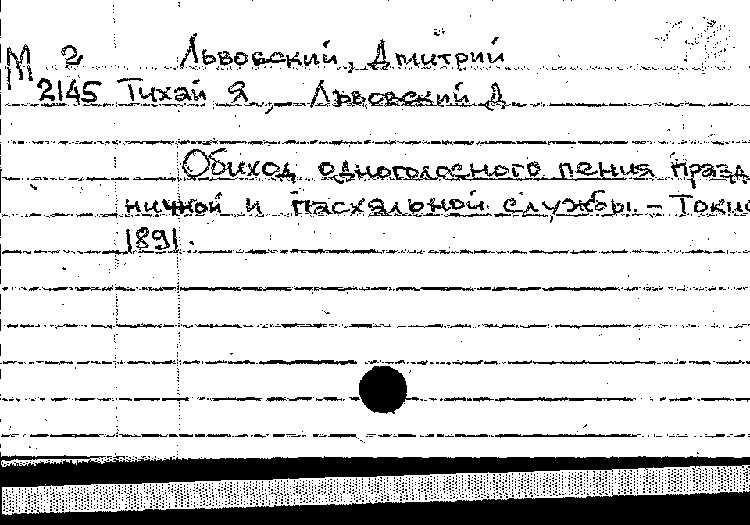 М 2 Львовский, Дмитрий
2145 Тихай Я, Львовский Д
Обиход одноголосного пения празд
ничной и пасхальной службы. – Токио
1891.